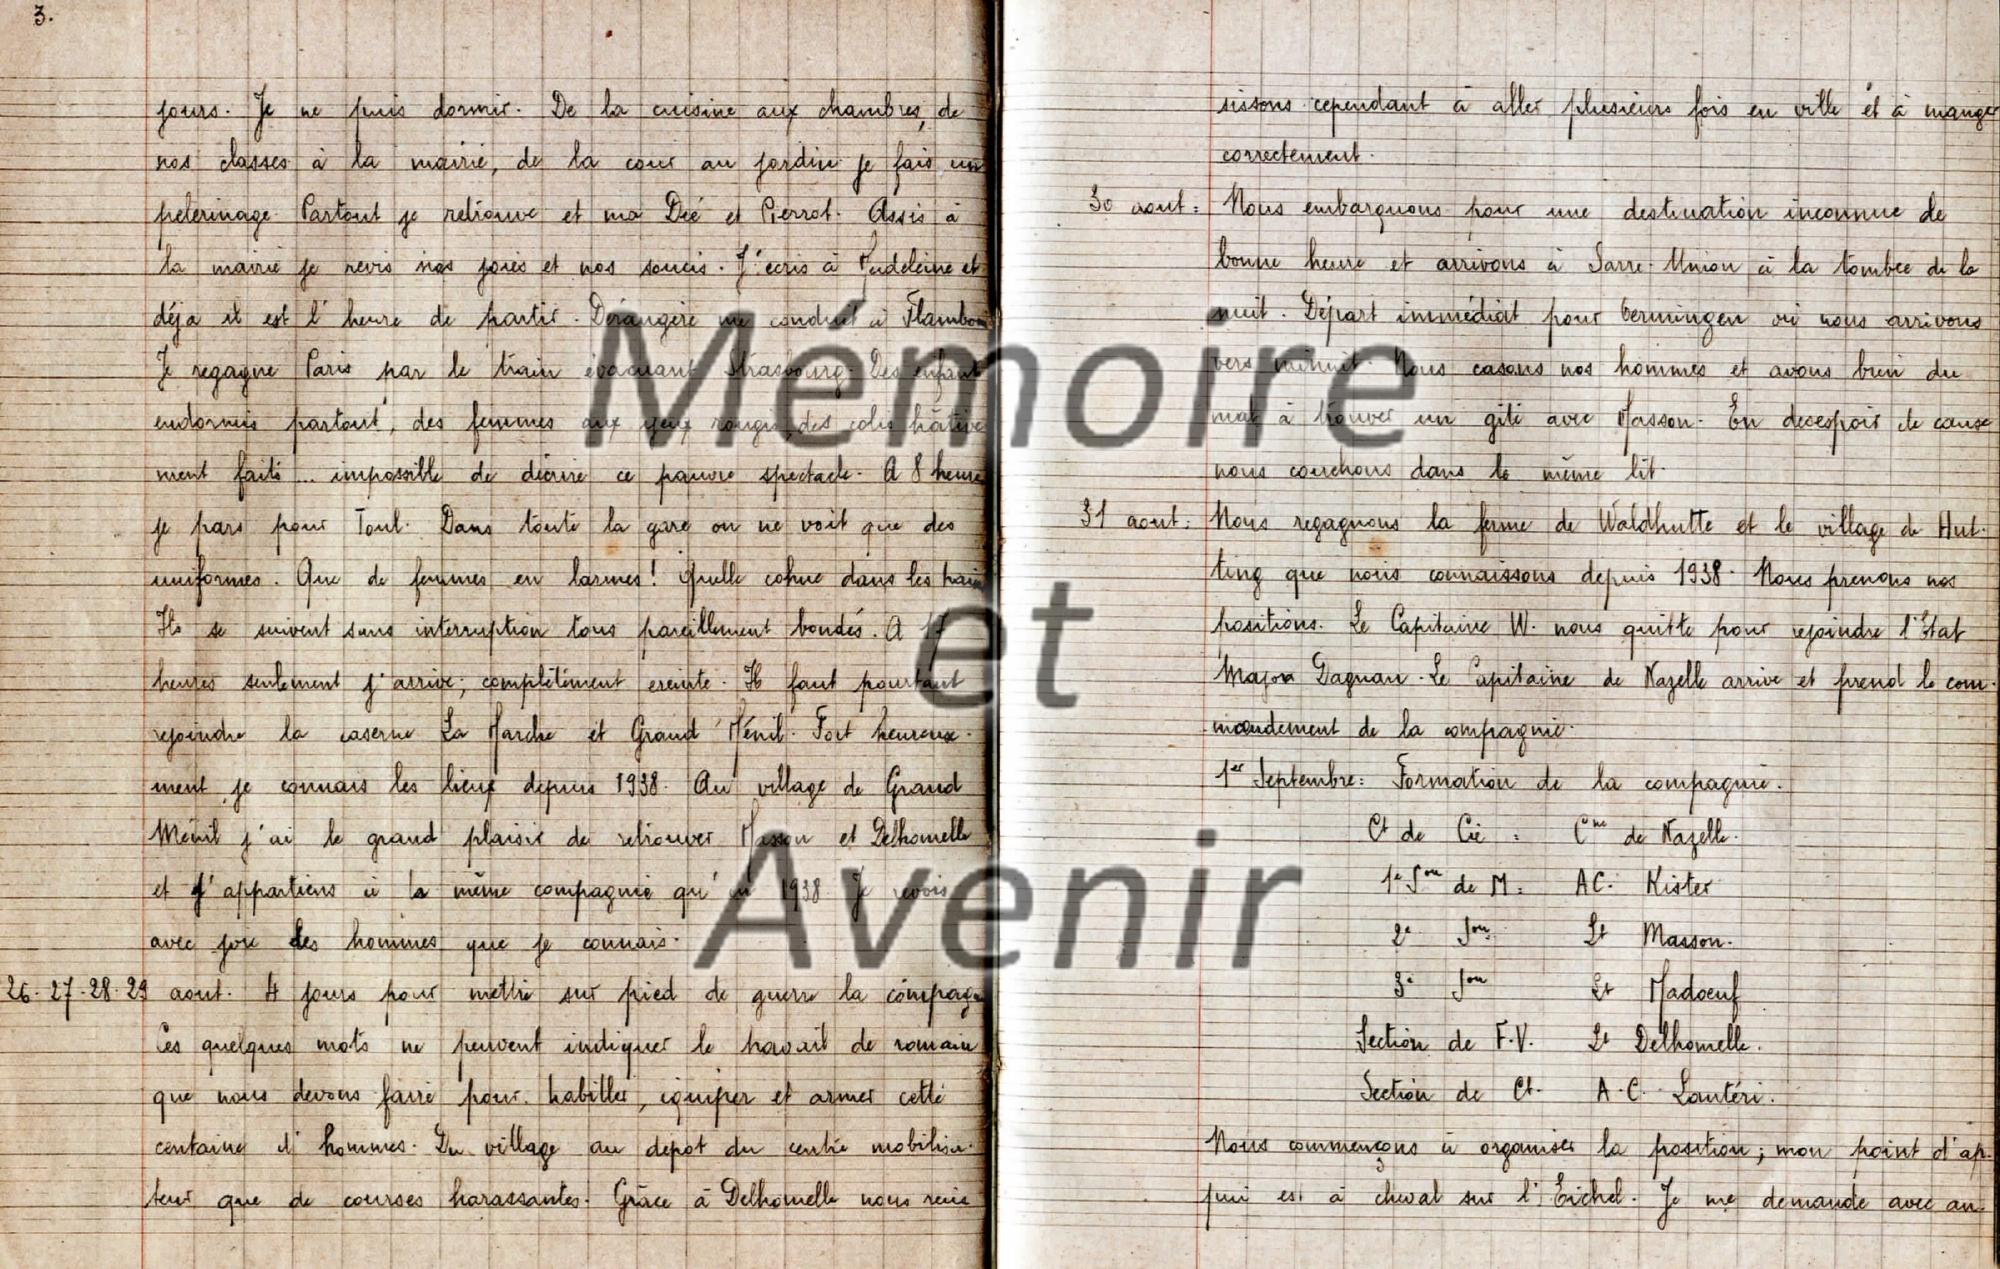 3.
jours. Je ne puis dormir. De la cuisine aux chambres, de
nos classes à la mairie, de la cour au jardin je fais un
pelerinage. Partout je retrouve et ma Dée et Pierrot. Assis à
la mairie je revis nos joies et nos soucis. J'écris à et
déja il est l'heure de partir. Dérangère me conduit à Flamboin
Je regagne Paris par le train évacuant Strasbourg. Des enfant
endormis partout, des femmes aux yeux rougis, des colis hâtive
ment faits... impossible de décrire ce pauvre spectacle. A 8 heure
je pars pour Toul. Dans toute la gare on ne voit que des
uniformes. Que de femmes en larmes! Quelle cohue dans les train
Ils se suivent sans interruption tous pareillement bondés. A 17
heures seulement j'arrive; complètement ereinté. Il faut pourtant
rejoindre la caserne La Marche et Grand Ménil. Fort heureuse-
ment je connais les lieux depuis 1938. Au village de Grand
Ménil j'ai le grand plaisir de retrouver Masson et Delhomelle
et j'appartiens à la même compagnie qu'en 1938 Je revois
avec joie des hommes que je connais.
26-27-28-29 aout. 4 jours pour mettre sur pied de guerre la compag
Ces quelques mots ne peuvent indiquer le travail de romain
que nous devons faire pour habiller, équiper et armer cette
centaine d'hommes. Du village au dépot du centre mobilisa-
teur que de courses harassantes. Grâce à Delhomelle nous réus
sissons cependant à aller plusieurs fois en ville et à manger
correctement.
30 aout: Nous embarquons pour une destination inconnue de
bonne heure et arrivons à Sarre-Union à la tombée de la
nuit. Départ immédiat pour Bermingen où nous arrivons
vers minuit. Nous casons nos hommes et avons bien du
mal à trouver un gite avec Masson. En desespoir de cause
nous couchons dans le même lit.
31 aout: Nous regagnons la ferme de Waldhutte et le village de Hut-
ting que nous connaissons depuis 1938. Nous prenons nos
positions. Le Capitaine W. nous quitte pour rejoindre l'Etat
Major Dagnan. Le Capitaine de Nazelle arrive et prend le com-
mandement de la compagnie.
1er Septembre: Formation de la compagnie.
Ct de Cie : Cne de Nazelle.
1e Son de M: AC. Kister
2e Son Lt Masson.
3e Son Lt Madoeuf
Section de F.V. Lt Delhomelle.
Section de Ct. A.C. Lantéri.
Nous commençons à organiser la position; mon point d'ap-
pui est à cheval sur l'Eichel. Je me demande avec an-
Mémoire
et
Avenir